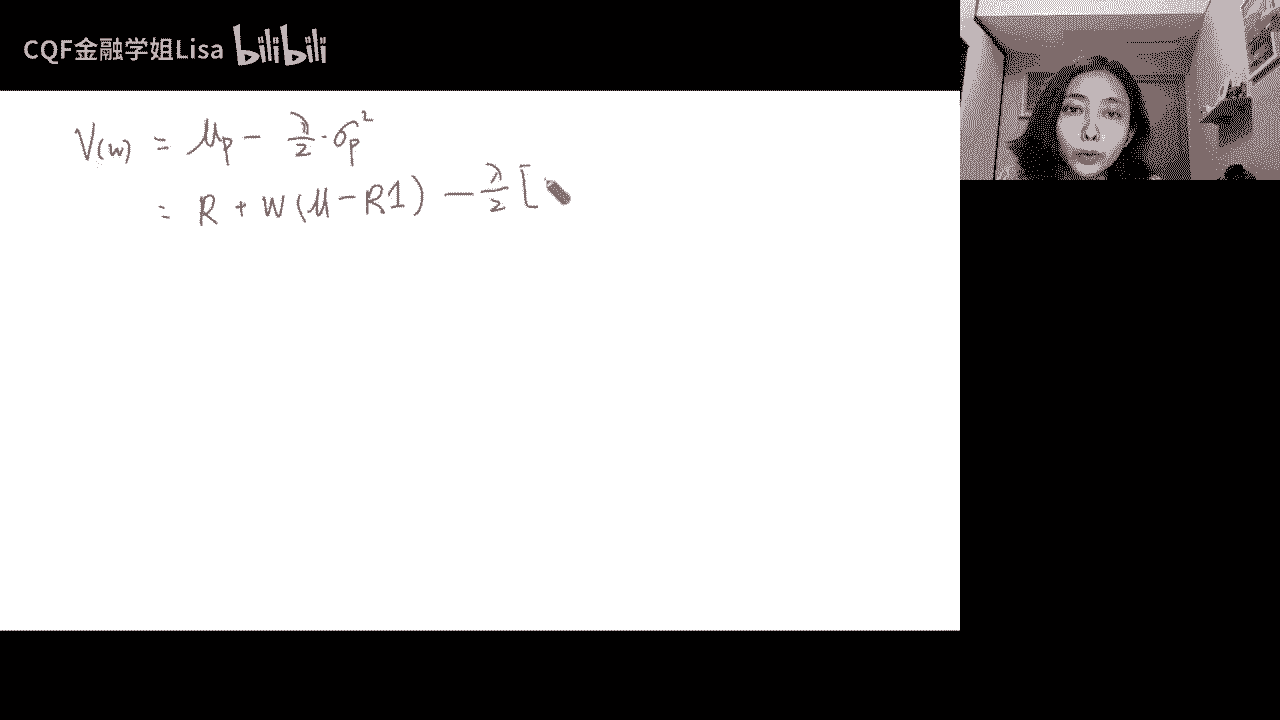 CQF金融学姐Lisa bilibili
V(w) = μp - λ/2 · σp²
= R + W(μ - R1) - λ/2 [